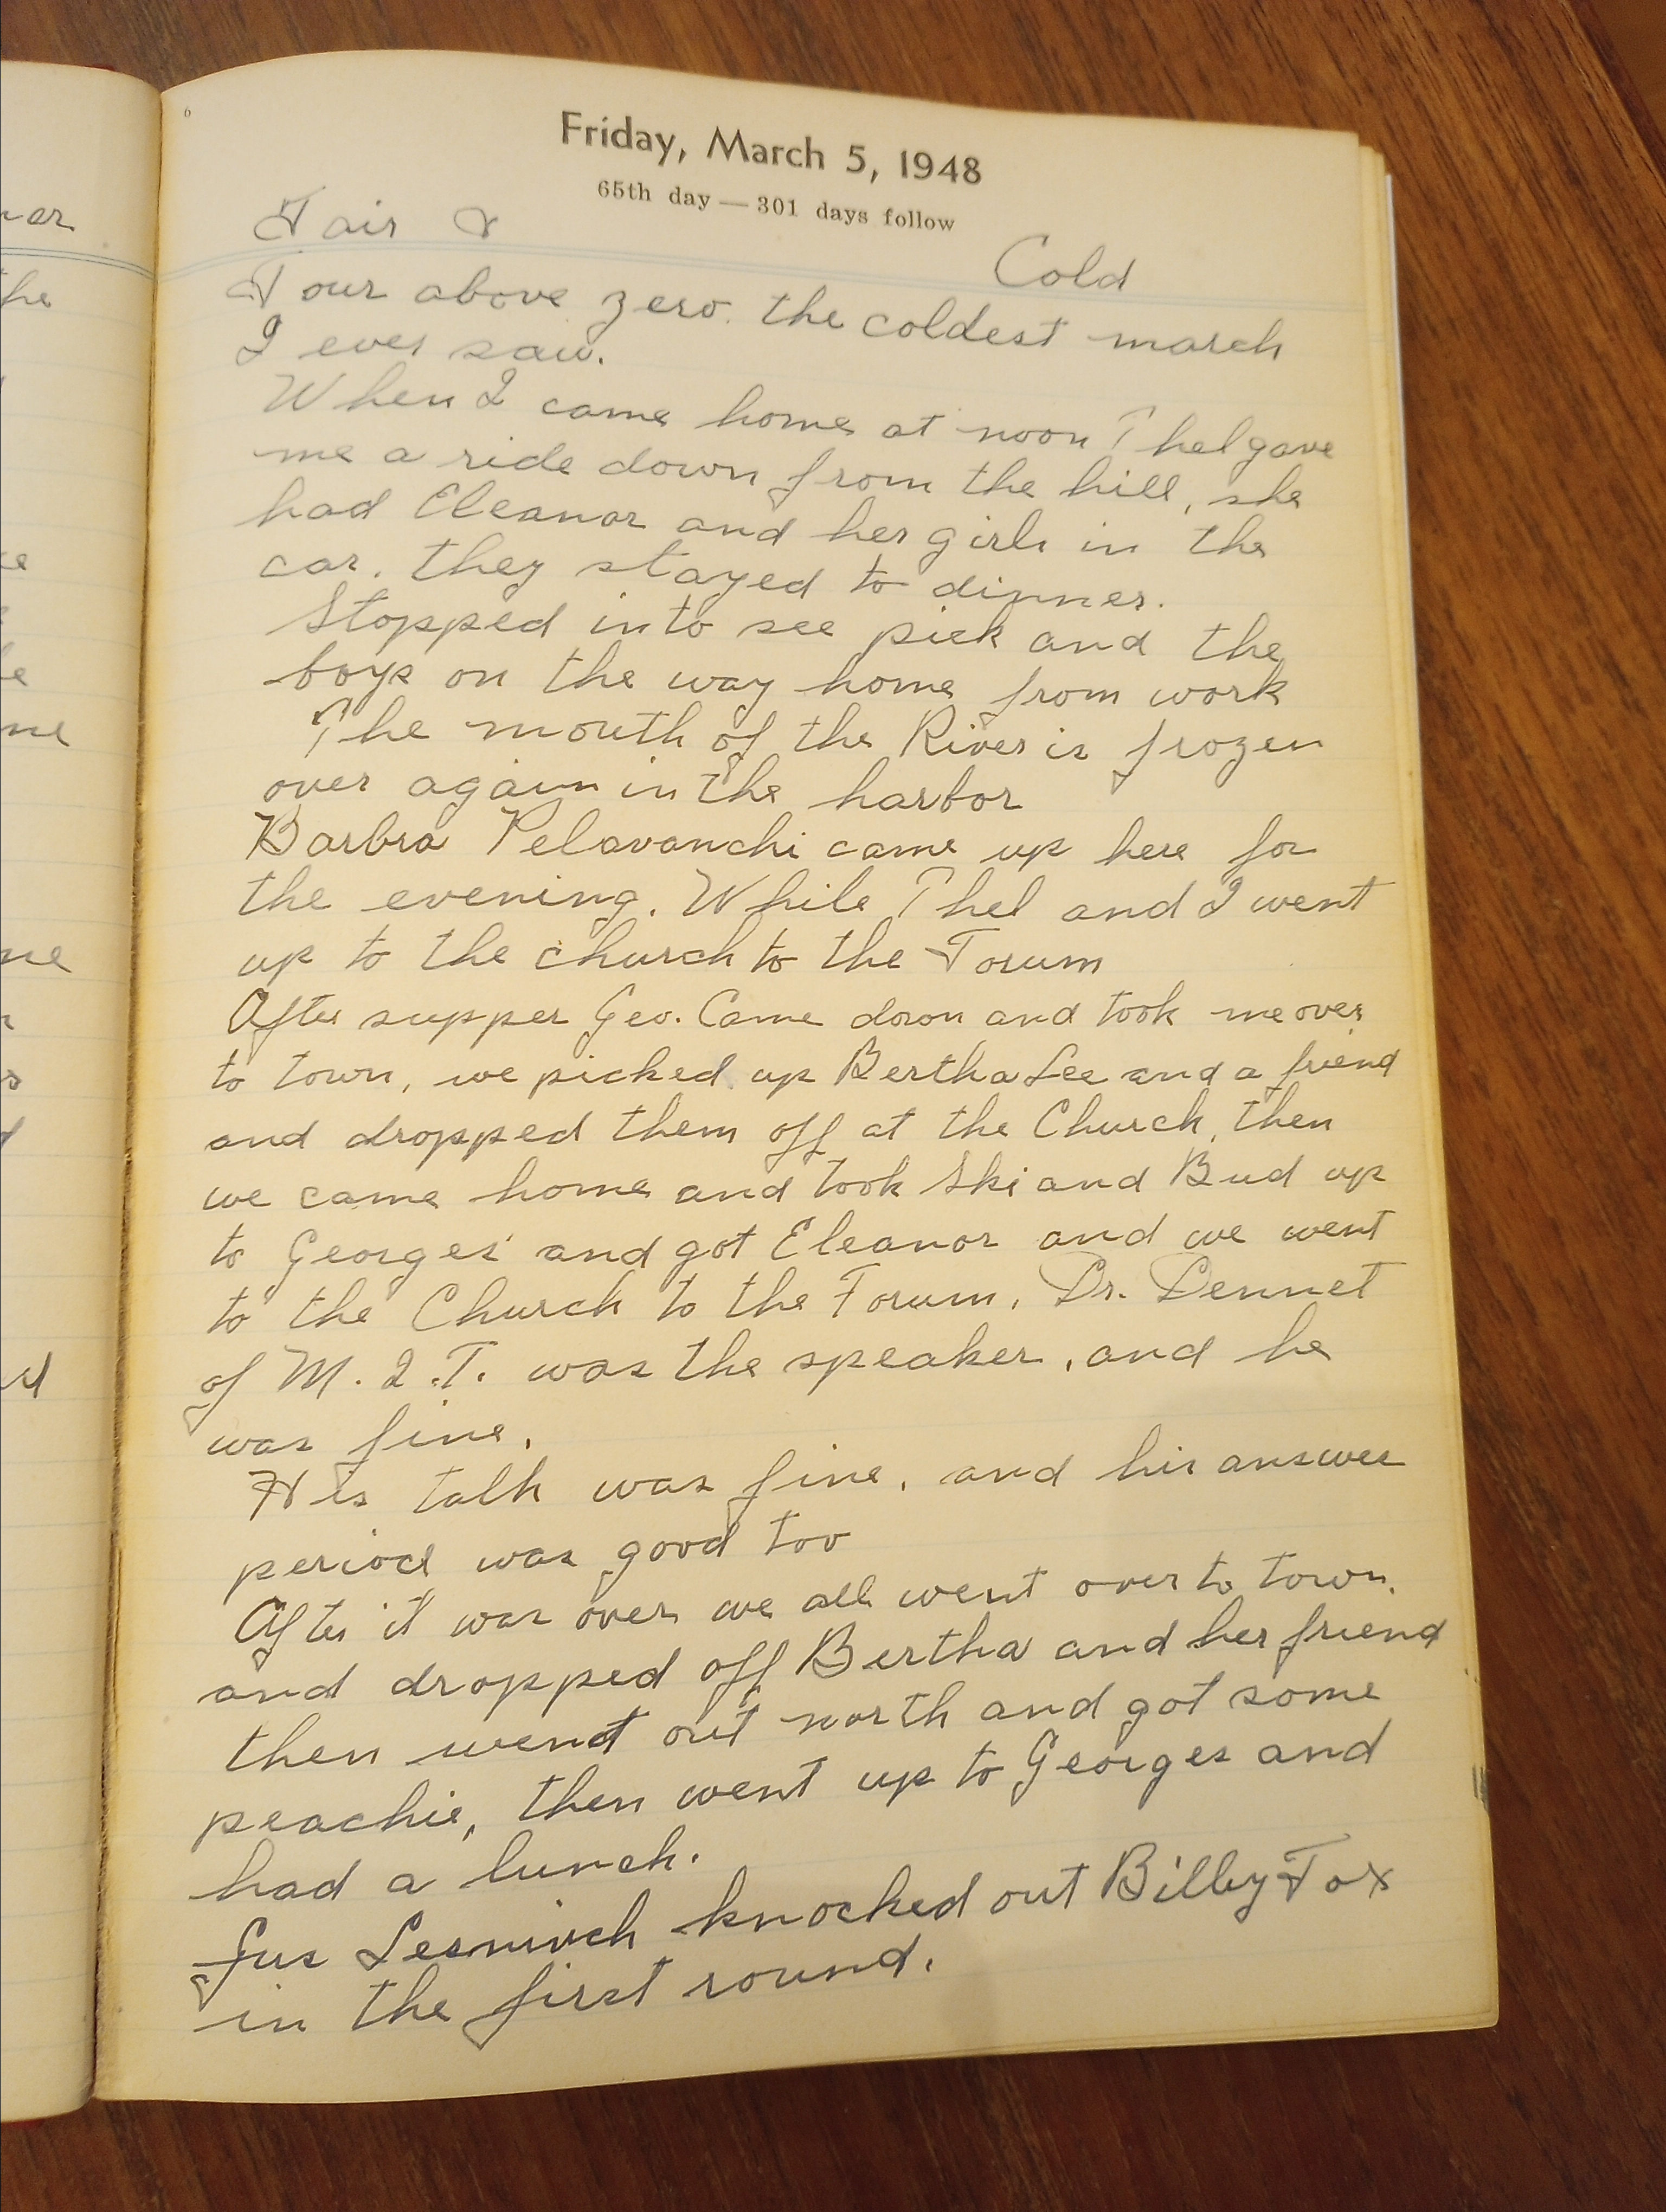 6
Friday, March 5, 1948
65th day — 301 days follow
Fair & Cold
Four above zero. the coldest march
I ever saw.
When I came home at noon Thel gave
me a ride down from the hill, she
had Eleanor and her girls in the
car. they stayed to dinner.
Stopped into see pick and the
boys on the way home from work
The mouth of the River is frozen
over again in the harbor
Barbra Pelavanchi came up here for
the evening. While Thel and I went
up to the church to the Forum
After supper Geo. Came down and took me over
to town, we picked up Bertha Lee and a friend
and dropped them off at the Church, then
we came home and took Ski and Bud up
to Georges' and got Eleanor and we went
to the Church to the Forum. Dr. Dennet
of M.I.T. was the speaker, and he
was fine.
His talk was fine, and his answer
period was good too
After it was over we all went over to town.
and dropped off Bertha and her friend
then went out north and got some
peachie, then went up to Georges and
had a lunch.
Gus Lesnivch knocked out Billy Fox
in the first round.